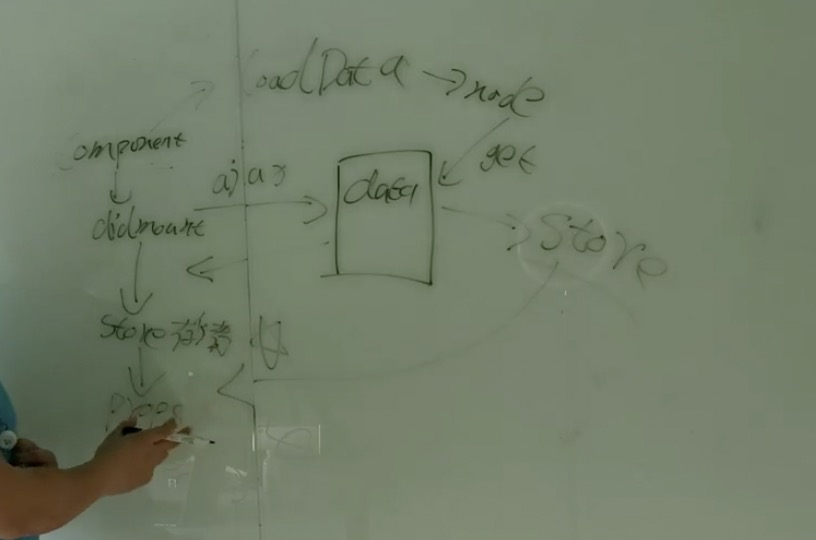 LoadData → node
Component
get
ajax
data
didmount
Store
Store
Props